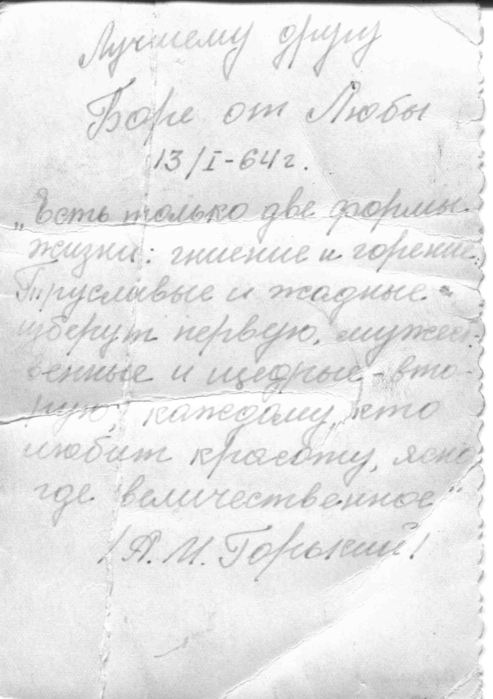 Лучшему другу
Боре от Любы
13/I-64 г.
„Есть только две формы
жизни: гниение и горение.
Трусливые и жадные
изберут первую, мужест-
венные и щедрые - вто-
рую, каждому, кто
любит красоту, ясно
где величественное"
/А.М. Горький/